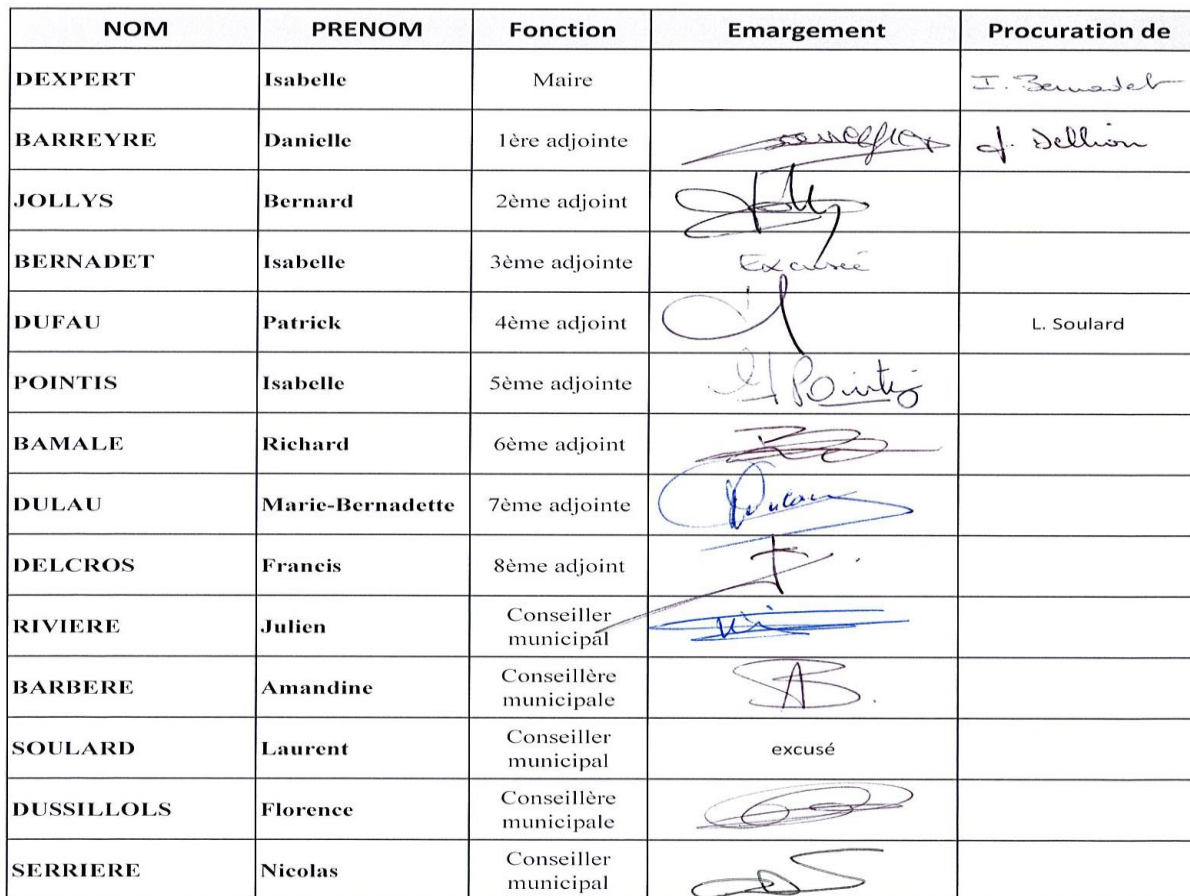 NOM PRENOM Fonction Emargement Procuration de
DEXPERT Isabelle Maire I. Bernadet
BARREYRE Danielle 1ère adjointe J. Dellion
JOLLYS Bernard 2ème adjoint Jollys
BERNADET Isabelle 3ème adjointe Excusée
DUFAU Patrick 4ème adjoint L. Soulard
POINTIS Isabelle 5ème adjointe Pointis
BAMALE Richard 6ème adjoint
DULAU Marie-Bernadette 7ème adjointe Dulau
DELCROS Francis 8ème adjoint
RIVIERE Julien Conseiller
municipal
BARBERE Amandine Conseillère
municipale AB.
SOULARD Laurent Conseiller
municipal excusé
DUSSILLOLS Florence Conseillère
municipale
SERRIERE Nicolas Conseiller
municipal